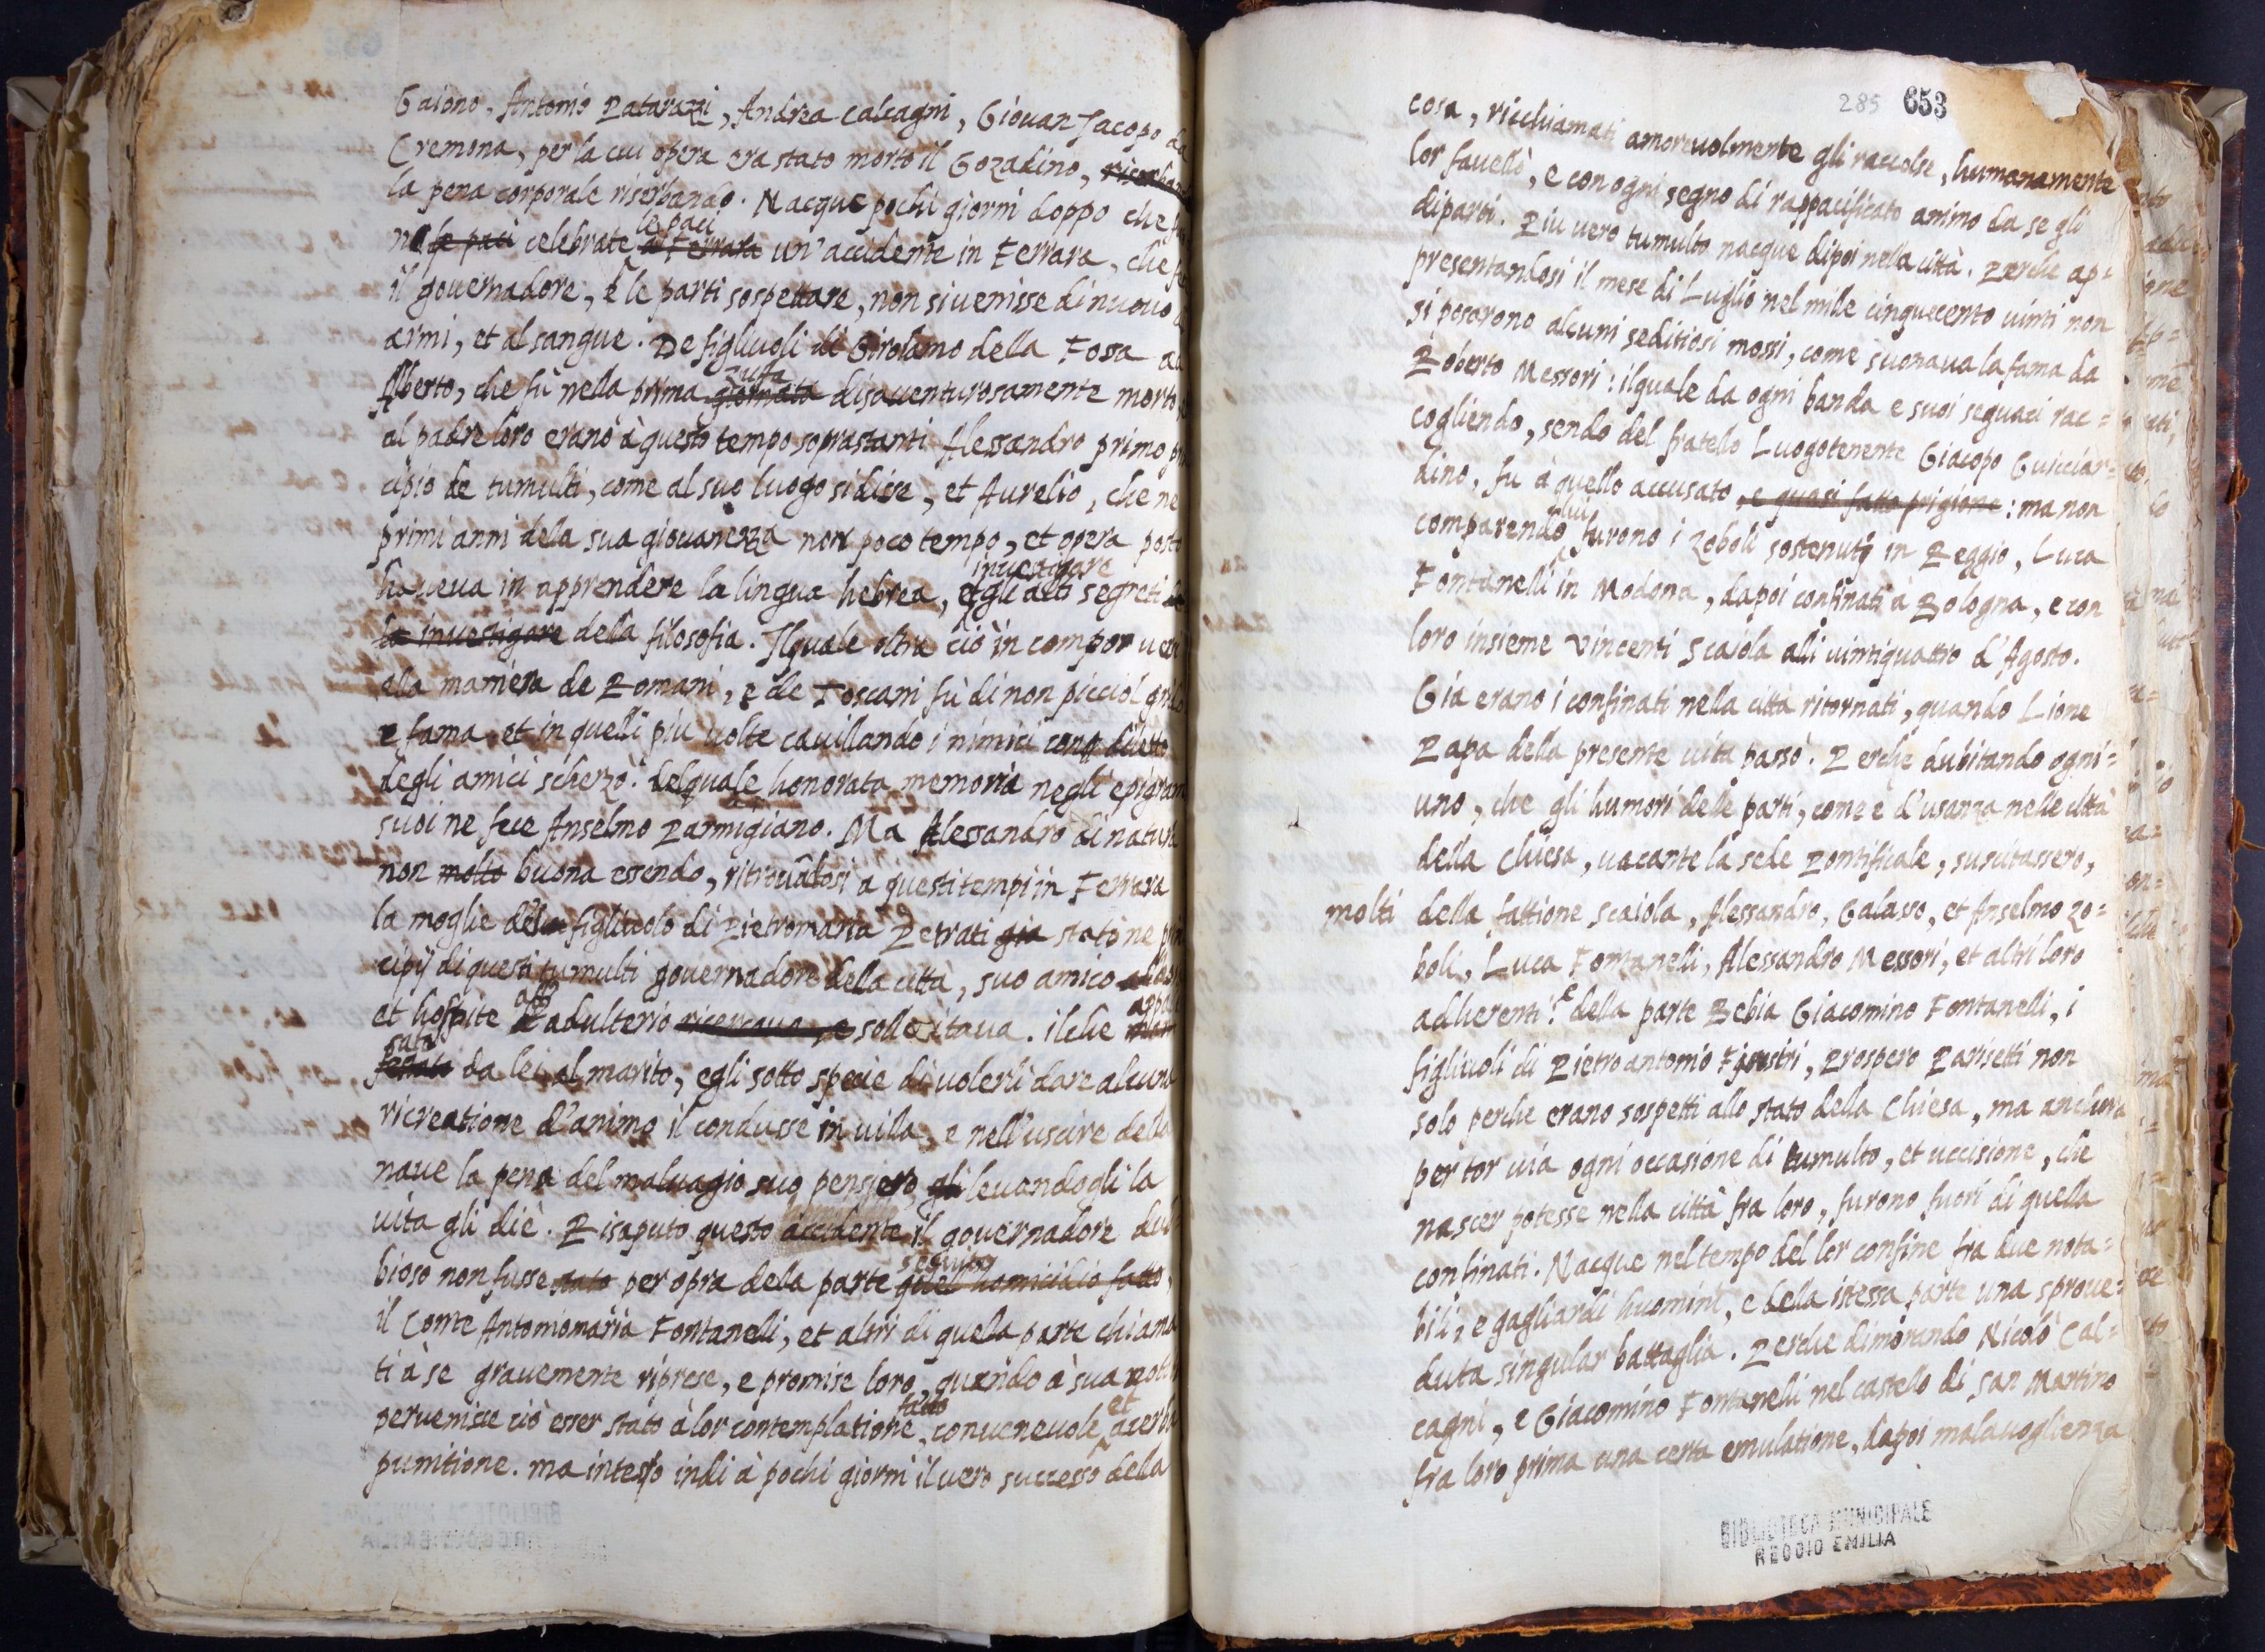 Gaiono, Antonio Patarazzi, Andrea Calcagni, Giovan Jacopo da
Cremona, per la cui opera era stato morto il Gozadino,
la pena corporale riserbando. Nacque pochi giorni doppo che
le paci
le paci celebrate a Ferrara un'accidente in Ferrara, che
il governadore, e le parti sospettare, non si venisse di nuovo
armi, et al sangue. De figliuoli di Girolamo della Fossa
zuffa
Alberto, che fù nella prima giornata disaventurosamente morto
al padre loro erano à questo tempo soprastanti Alessandro primo
cipio de tumulti, come al suo luogo si disse, et Aurelio, che ne
primi anni della sua giovanezza non poco tempo, et opera posto
investigare
haveva in apprendere la lingua hebrea, et gli alti segreti
la investigare della filosofia. Il quale oltra ciò in compor
alla maniera de Romani, e de Toscani fù di non picciol
e fama et in quelli più volte cavillando i nimici con diletto
degli amici scherzò. del quale honorata memoria negli
suoi ne fece Anselmo Parmigiano. Ma Alessandro di natura
non molto buona essendo, ritrovãdosi a questi tempi in Ferrara
la moglie del figliuolo di Pietromaria Petrati già stato ne
cipij di questi tumulti governadore della città, suo amico
et hospite adulterio ricercava, e sollecitava. il che
da lei al marito, egli sotto specie di volerli dare alcuna
ricreatione d'animo il condusse in villa, e nell'uscire della
nave la pena del malvagio suo pensiero, gli levandogli la
vita gli diè. Risaputo questo accidente il governadore du
seguito
bioso non fusse stato per opra della parte quell'homicidio fatto,
il Conte Antoniomaria Fontanelli, et altri di quella parte chiama
ti à se gravemente riprese, e promise loro, quando à sua
fatto et
pervenisse ciò esser stato à lor contemplatione, convenevole,
punitione. ma inteso indi à pochi giorni il vero successo della
285 653
cosa, ricchiamati amorevolmente gli raccolse, humanamente
lor favellò, e con ogni segno di rappacificato animo da se gli
dipartì. Piu vero tumulto nacque dipoi nella città. Perche ap=
presentandosi il mese di Luglio nel mille cinquecento vinti non
si posarono alcuni seditiosi mossi, come suonava la fama da
Roberto Messori: il quale da ogni banda e suoi seguaci rac=
cogliendo, sendo del fratello Luogotenente Giacopo Guicciar=
dino, fu à quello accusato, e quasi fatto prigione: ma non
lui
comparendo furono i Zoboli sostenuti in Reggio, Luca
Fontanelli in Modona, dapoi confinati à Bologna, e con
loro insieme Vincenti Scaiola alli vintiquattro d'Agosto.
Gia erano i confinati nella città ritornati, quando Lione
Papa della presente vita passò. Perche dubitando ogni=
uno, che gli humori delle parti, come è d'usanza nelle città
della Chiesa, vacante la sede Pontificale, suscitassero,
molti della fattione Scaiola, Alessandro, Galasso, et Anselmo Zo=
boli, Luca Fontanelli, Alessandro Messori, et altri loro
adherenti: e della parte Bebia Giacomino Fontanelli, i
figliuoli di Pietroantonio, Prospero Parisetti non
solo perche erano sospetti allo stato della Chiesa, ma anchora
per tor via ogni occasione di tumulto, et uccisione, che
nascer potesse nella città fra loro, furono fuori di quella
confinati. Nacque nel tempo del lor confine fra due nota=
bili, e gagliardi huomini, e della istessa parte una sprove=
duta singular battaglia. Perche dimorando Nicolò Cal=
cagni, e Giacomino Fontanelli nel castello di San Martino
fra loro prima una certa emulatione, dapoi malavoglienza
BIBLIOTECA MUNICIPALE
REGGIO EMILIA